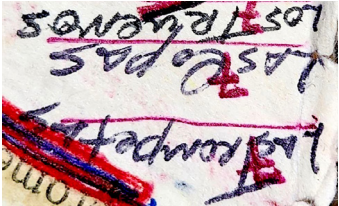 Las 7 Trompetas
LAS 7 COPAS
LOS 7 TRUENOS